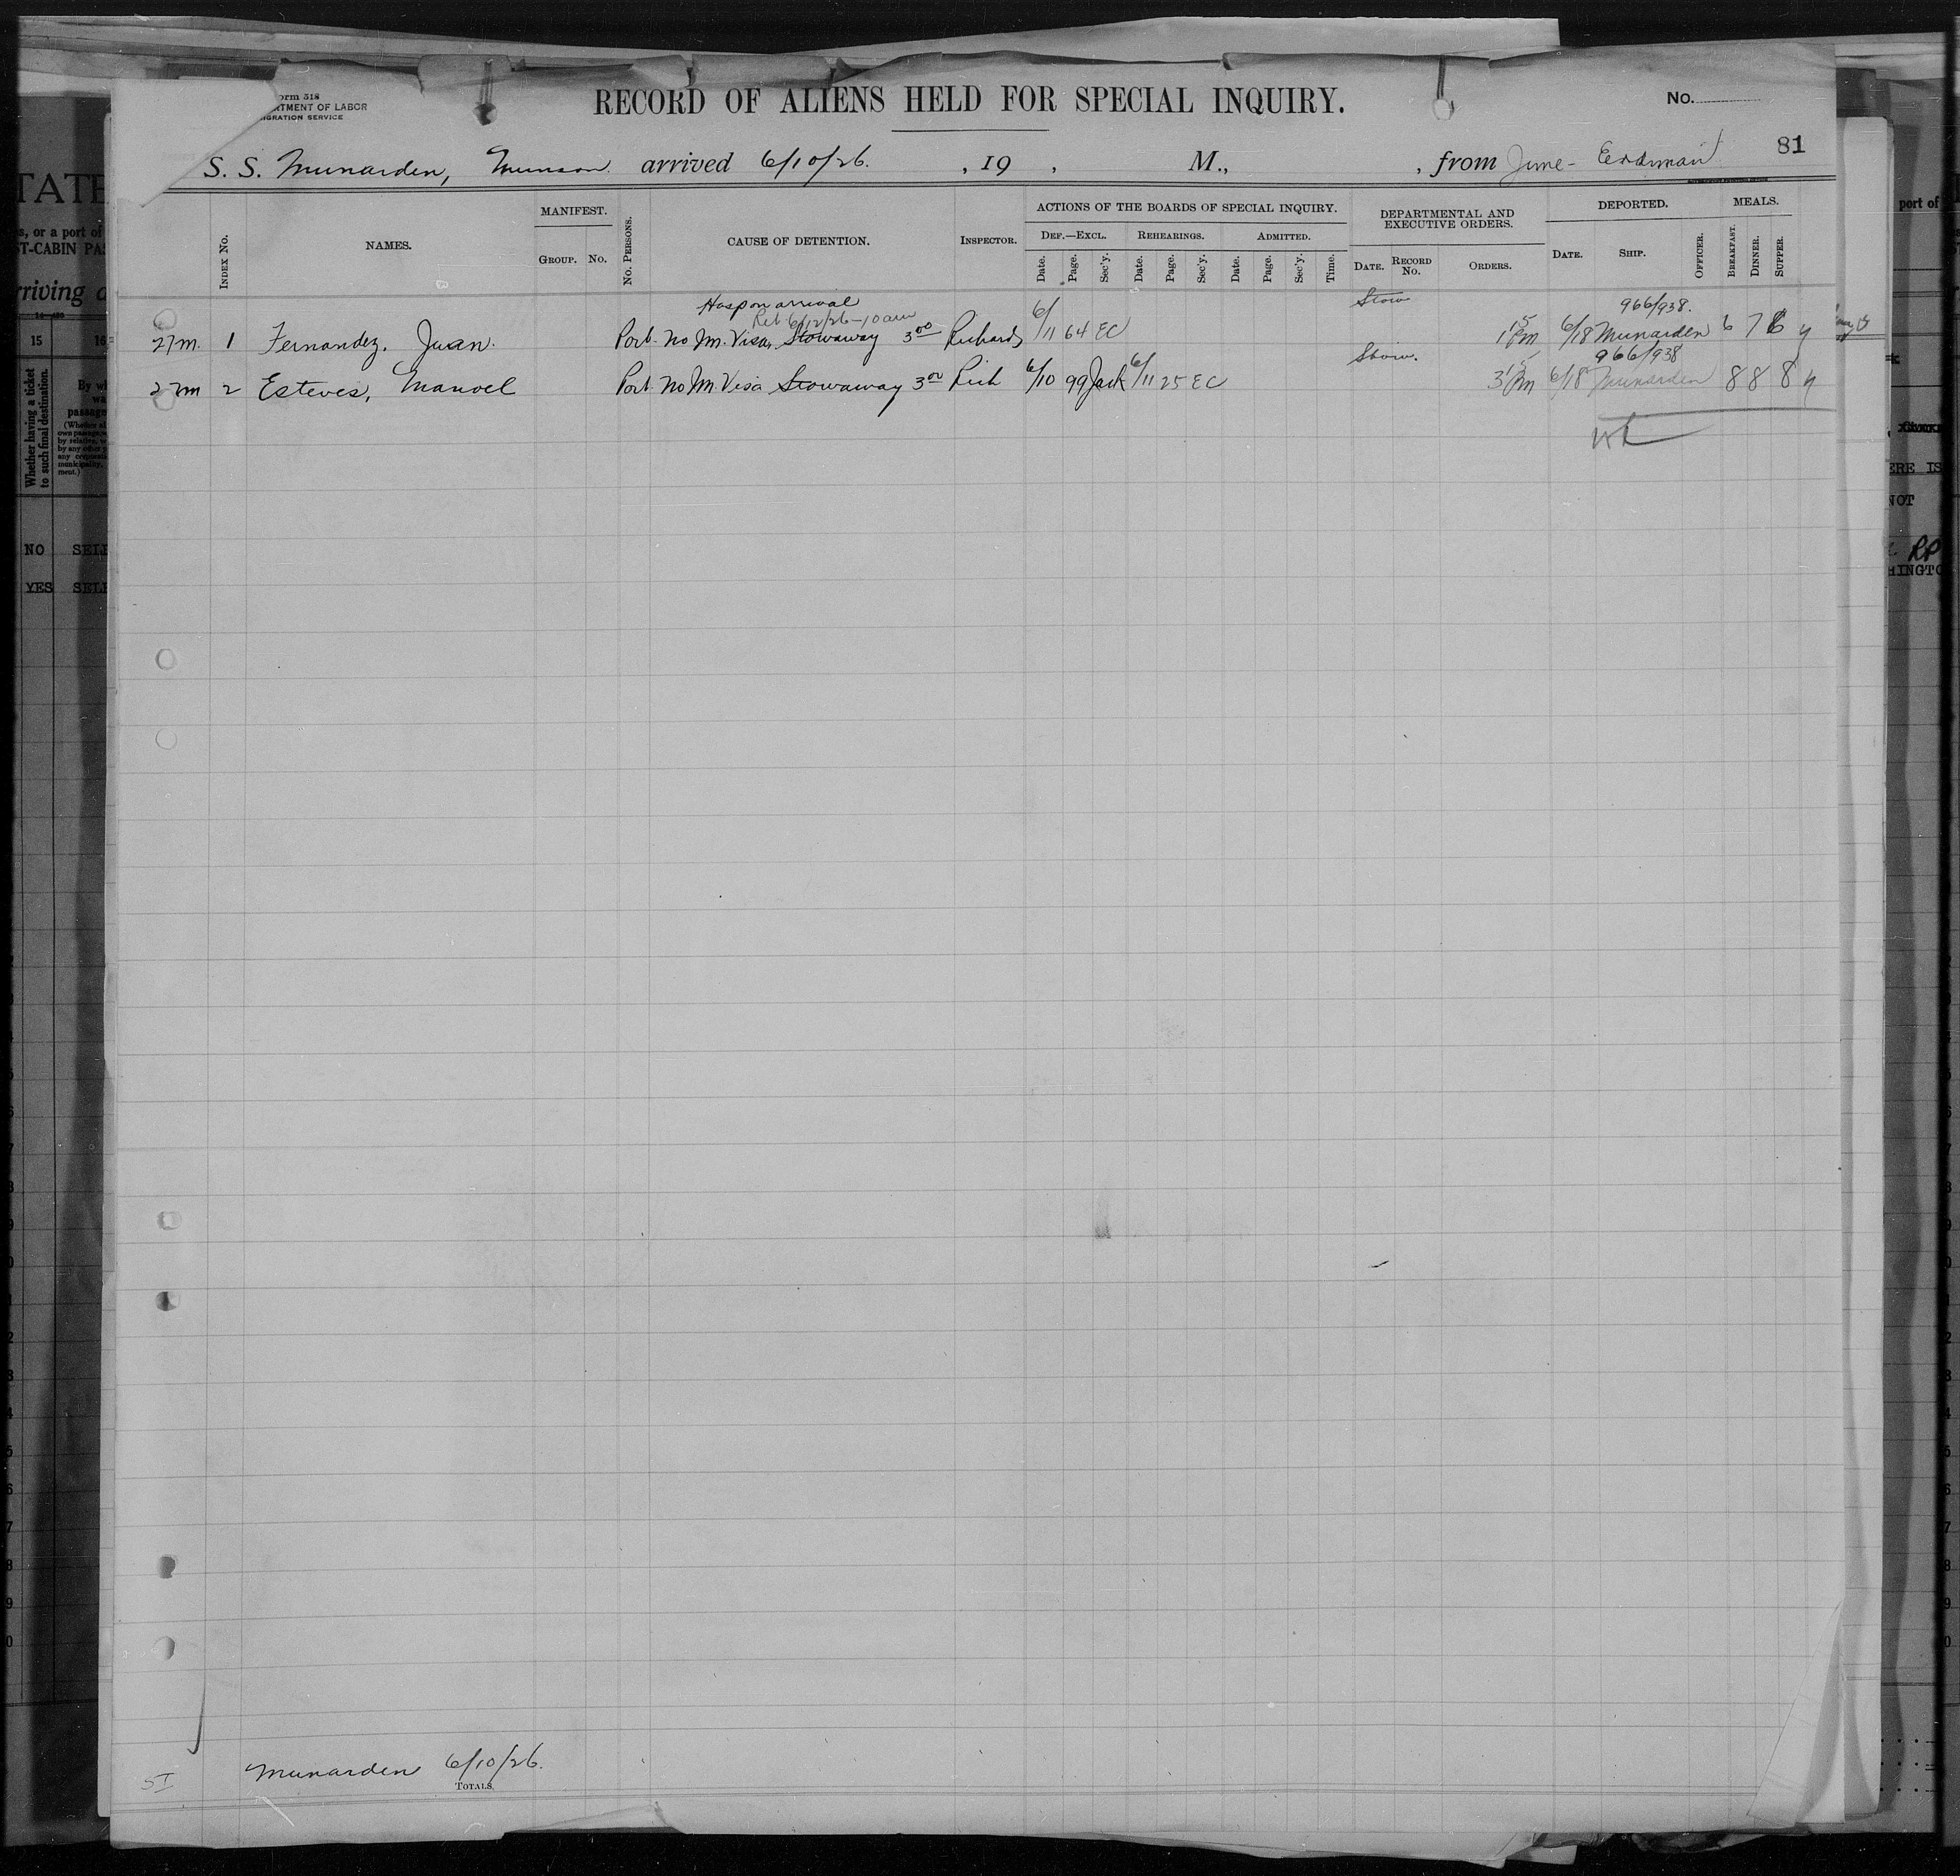 orm 518
RTMENT OF LABOR
IGRATION SERVICE
RECORD OF ALIENS HELD FOR SPECIAL INQUIRY.
No.
81
S. S. Munarden, Munson arrived 6/10/26. , 19 , M., , from June-
INDEX No.
NAMES.
MANIFEST.
GROUP. No.
No. PERSONS.
CAUSE OF DETENTION.
INSPECTOR.
ACTIONS OF THE BOARDS OF SPECIAL INQUIRY.
DEF.—EXCL. REHEARINGS. ADMITTED.
Date. Page. Sec'y. Date. Page. Sec'y. Date. Page. Sec'y. Time.
DEPARTMENTAL AND
EXECUTIVE ORDERS.
DATE. RECORD No. ORDERS.
DEPORTED.
DATE. SHIP. OFFICER.
MEALS.
BREAKFAST. DINNER. SUPPER.
Hosp on arrival Stow 966/938.
Ret 6/12/26-10 am
27m. 1 Fernandez, Juan. Port. No Im. Visa, Stowaway 3⁰⁰ Richards 6/11 64 EC 1 15 Pm 6/18 Munarden 6 7 6 y
Stow. 966/938
27m 2 Esteves, Manoel Port. No Im. Visa Stowaway 3⁰⁰ Rich 6/10 99 Jack 6/11 25 EC 3 15 Pm 6/18 Munarden 8 8 8 y
Munarden 6/10/26.
TOTALS.
TATE
s, or a port of
ST-CABIN PAS
rriving a
15 16
Whether having a ticket
to such final destination.
NO SELF
YES SELF
port of
ERE IS
NOT
RP
HINGTO